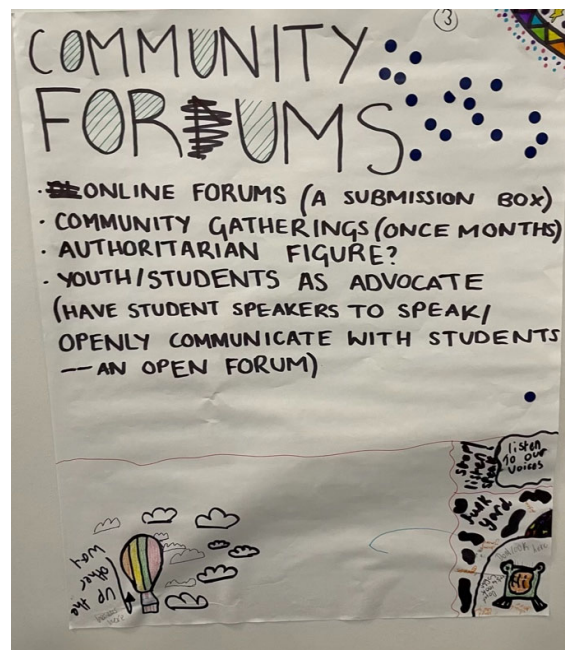 3
COMMUNITY
FORUMS
· ONLINE FORUMS (A SUBMISSION BOX)
· COMMUNITY GATHERINGS (ONCE MONTHS)
· AUTHORITARIAN FIGURE?
· YOUTH/STUDENTS AS ADVOCATE
(HAVE STUDENT SPEAKERS TO SPEAK/
OPENLY COMMUNICATE WITH STUDENTS
-- AN OPEN FORUM)
stop
listen
speak
listen
to our
voices
junk
yard
Hi
up the
other
way